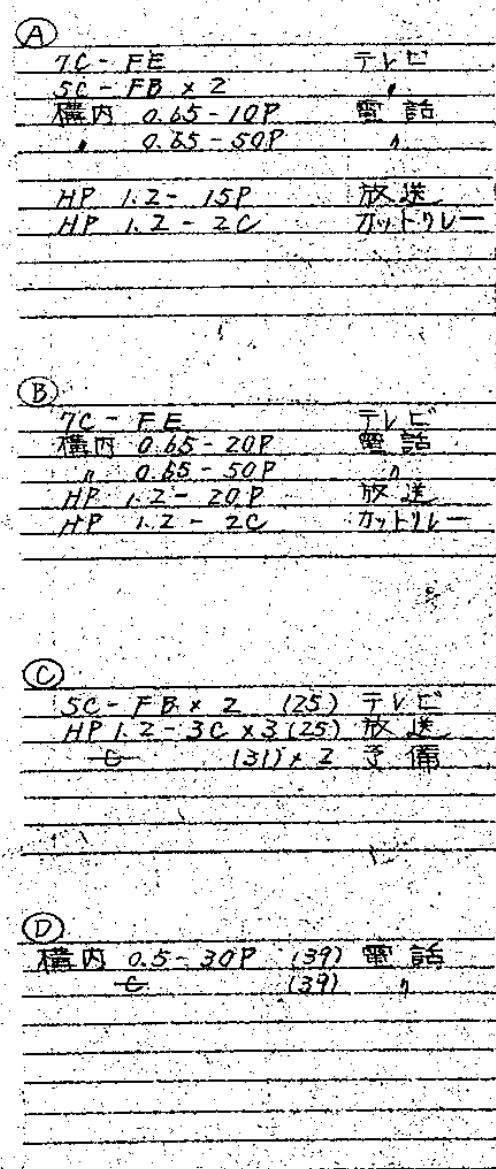 Ⓐ
7C-FE テレビ
5C-FB×2 〃
構内 0.65-10P 電話
〃 0.65-50P 〃
HP 1.2-15P 放送
HP 1.2-2C カットリレー
Ⓑ
7C-FE テレビ
構内 0.65-20P 電話
〃 0.65-50P 〃
HP 1.2-20P 放送
HP 1.2-2C カットリレー
Ⓒ
5C-FB×2 (25) テレビ
HP 1.2-3C×3 (25) 放送
(31)×2 予備
Ⓓ
構内 0.5-30P (39) 電話
(39) 〃